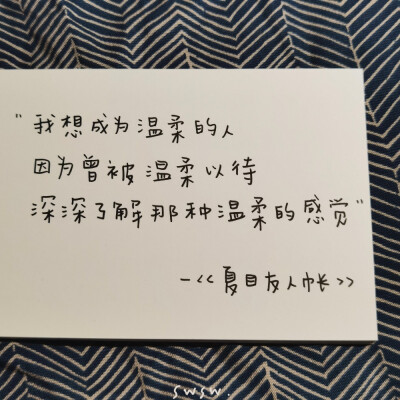 "我想成为温柔的人
因为曾被温柔以待
深深了解那种温柔的感觉"
—<<夏目友人帐>>
swsw.